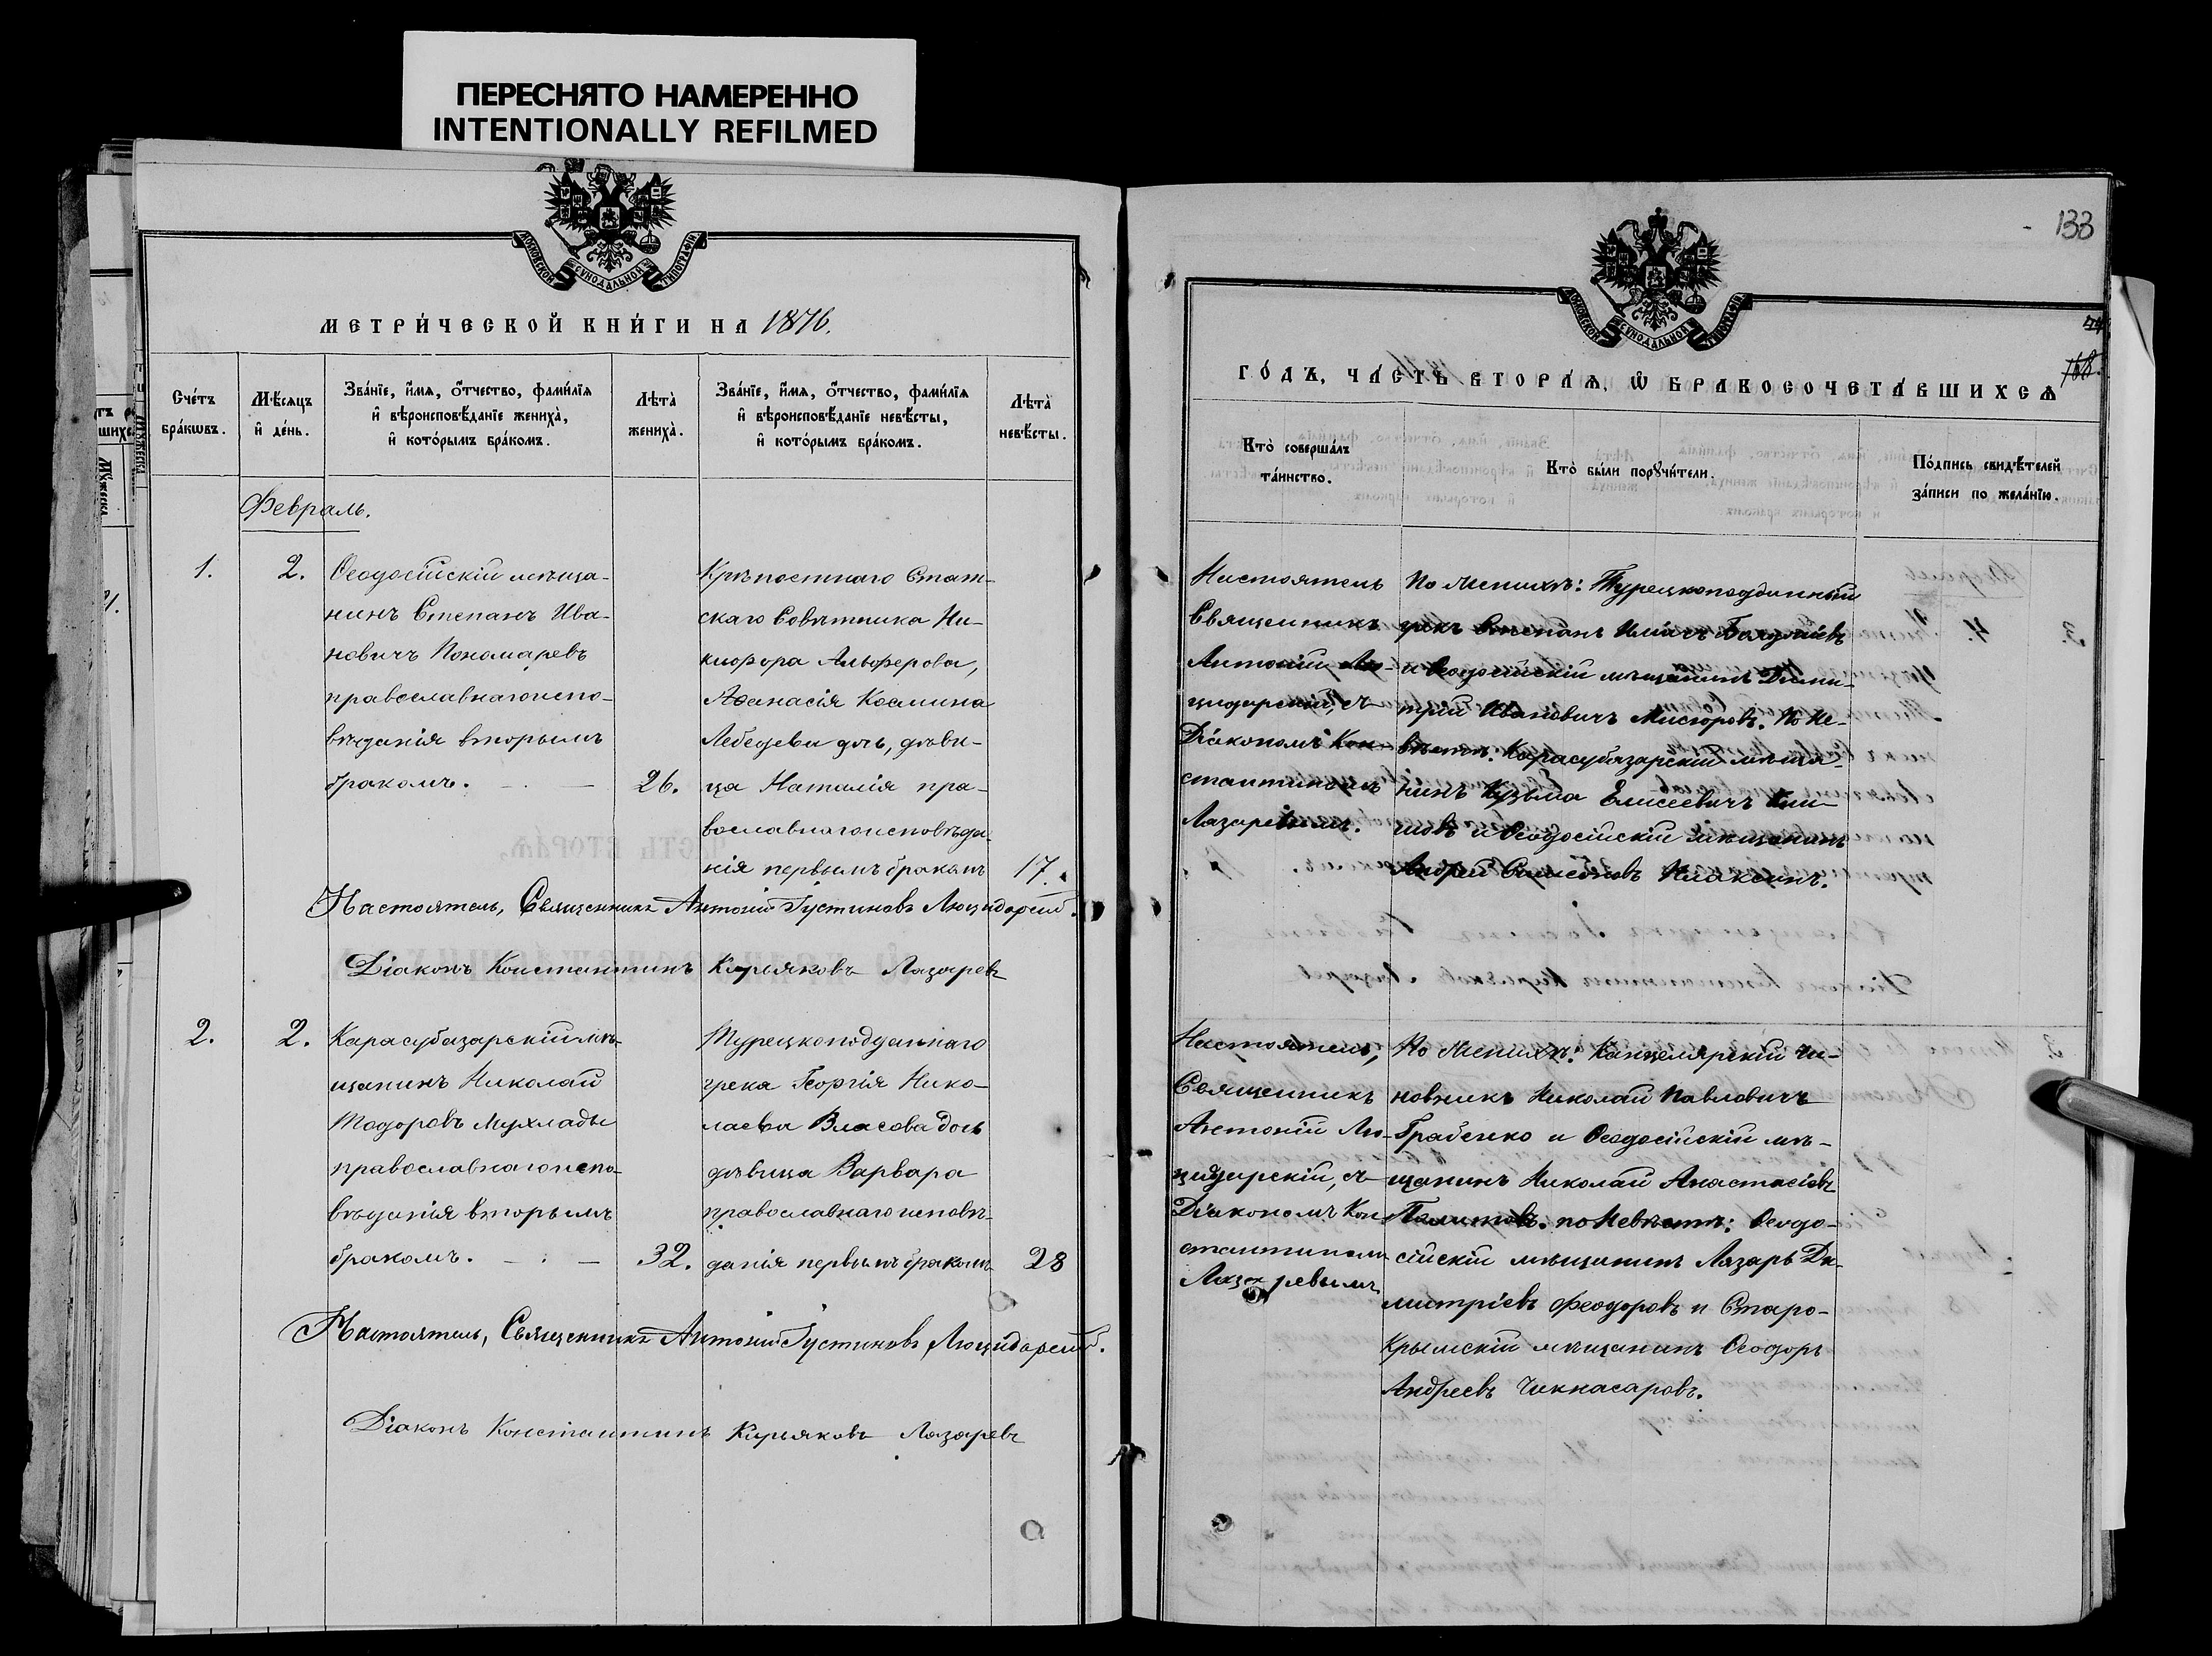 ПЕРЕСНЯТО НАМЕРЕННО
INTENTIONALLY REFILMED
МОСКОВСКОЙ СѴНОДАЛЬНОЙ ТИПОГРАФІИ
МЕТРИ́ЧЕСКОЙ КНИ́ГИ НА 1876.
Сче́тъ бра́кѡвъ.
Мѣ́сяцъ и҆ де́нь.
Зва́нїе, и҆́мя, ѻ҆́тчество, фами́лїя и҆ вѣроисповѣ́данїе жениха̀, и҆ кото́рымъ бра́комъ.
Лѣта̀ жениха̀.
Зва́нїе, и҆́мя, ѻ҆́тчество, фами́лїя и҆ вѣроисповѣ́данїе невѣ́сты, и҆ кото́рымъ бра́комъ.
Лѣта̀ невѣ́сты.
Февраль.
1.
2.
Ѳеодосійскій мѣща-
нинъ Степанъ Ива-
новичъ Пономаревъ
православнаго испо-
вѣданія вторымъ
бракомъ. — 26.
Крѣпостнаго Стат-
скаго Совѣтника Ни-
кифора Альферова,
Аѳанасія Космина
Лебедева дочь, дѣви-
ца Наталія пра-
вославнаго исповѣда-
нія первымъ бракомъ 17.
Настоятель, Священникъ Антоній Іустиновъ Люцидарскій.
Діаконъ Константинъ Кирьяковъ Лазаревъ
2.
2.
Карасубазарскій мѣ-
щанинъ Николай
Тодоровъ Мухлады
православнаго испо-
вѣданія вторымъ
бракомъ. — 32.
Турецкоподданнаго
грека Георгія Нико-
лаева Власова дочь
дѣвица Варвара
православнаго исповѣ-
данія первымъ бракомъ 28
Настоятель, Священникъ Антоній Іустиновъ Люцидарскій.
Діаконъ Константинъ Кирьяковъ Лазаревъ
133
МОСКОВСКОЙ СѴНОДАЛЬНОЙ ТИПОГРАФІИ
168.
ГО́ДЪ, ЧА́СТЬ ВТОРА́Ѧ, Ѽ БРАКОСОЧЕТА́ВШИХСѦ
Кто̀ соверша́лъ та́инство.
Кто̀ бы́ли порꙋчи́тели.
По́дпись свидѣ́телей за́писи по жела́нїю.
Настоятель
Священникъ
Антоній Лю-
цидарскій, съ
Діакономъ Кон-
стантиномъ
Лазаревымъ.
По женихѣ: Турецкоподданный
грекъ Степанъ
и Ѳеодосійскій мѣщанинъ Дими-
трій Ивановичъ Мисюровъ. По не-
вѣстѣ: Карасубазарскій мѣща-
нинъ Кузьма Елисеевичъ
и Ѳеодосійскій мѣщанинъ
Андрей Симеоновъ Плаксинъ.
Настоятель,
Священникъ
Антоній Лю-
цидарскій, съ
Діакономъ Кон-
стантиномъ
Лазаревымъ
По женихѣ: Канцелярскій чи-
новникъ Николай Павловичъ
Грабенко и Ѳеодосійскій мѣ-
щанинъ Николай Анастасіевъ
по невѣстѣ: Ѳеодо-
сійскій мѣщанинъ Лазарь Ди-
митріевъ Феодоровъ и Старо-
Крымскій мѣщанинъ Ѳеодоръ
Андреевъ Чикнасаровъ.